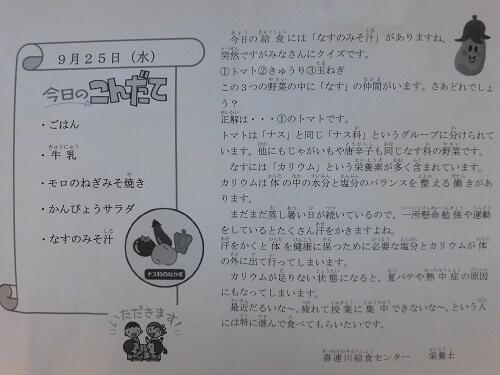 9月25日（水）
今日のこんだて
・ごはん
・牛乳
・モロのねぎみそ焼き
・かんぴょうサラダ
・なすのみそ汁
ナス科のなかま
いただきます!
今日の給食には「なすのみそ汁」がありますね。
突然ですがみなさんにクイズです。
①トマト②きゅうり③玉ねぎ
この3つの野菜の中に「なす」の仲間がいます。さあどれでしょ
う？
正解は・・・①のトマトです。
トマトは「ナス」と同じ「ナス科」というグループに分けられて
います。他にもじゃがいもや唐辛子も同じなす科の野菜です。
なすには「カリウム」という栄養素が多く含まれています。
カリウムは体の中の水分と塩分のバランスを整える働きがあ
ります。
まだまだ蒸し暑い日が続いているので、一所懸命勉強や運動
をしているとたくさん汗をかきますよね。
汗をかくと体を健康に保つために必要な塩分とカリウムが体
の外に出て行ってしまいます。
カリウムが足りない状態になると、夏バテや熱中症の原因
にもなってしまいます。
最近だるいな～。疲れて授業に集中できないな～。という人
には特に進んで食べてもらいたいです。
喜連川給食センター　栄養士